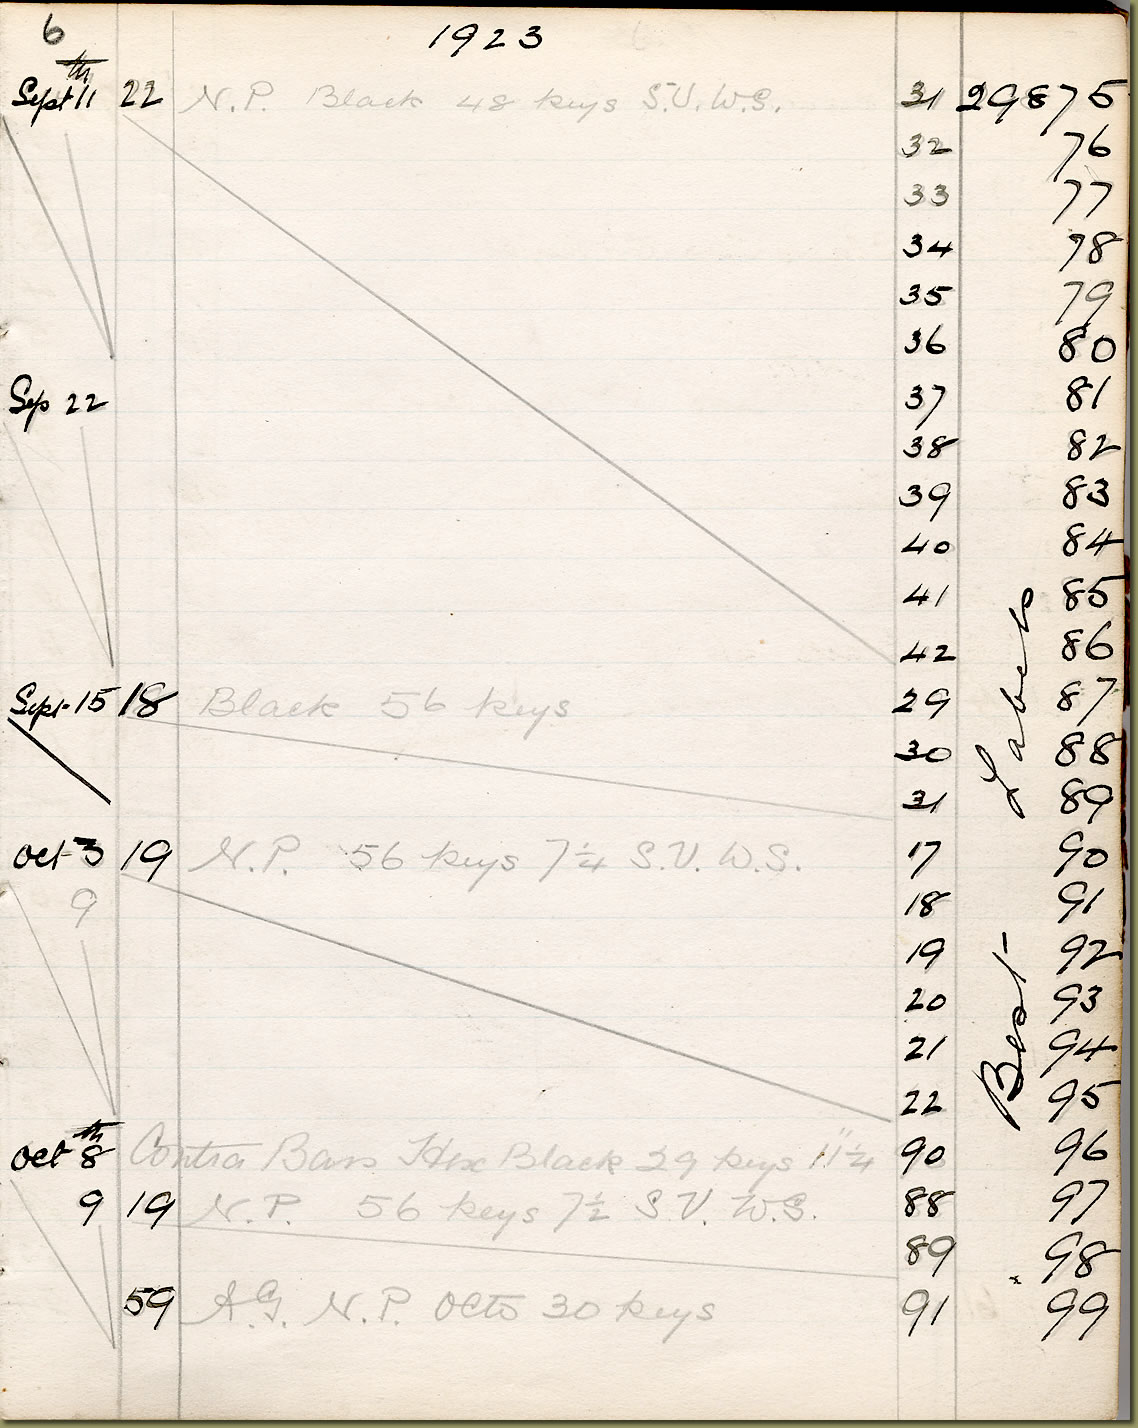 6 1923
Sept 11th 22 N.P. Black 48 keys S.V. W.S. 31 29875
32 76
33 77
34 78
35 79
36 80
Sep 22 37 81
38 82
39 83
40 84
41 85
42 86
Sept-15 18 Black 56 keys 29 87
30 88
31 89
Oct-3 19 N.P. 56 keys 7¼ S.V. W.S. 17 90
9 18 91
19 92
20 93
21 94
22 95
Oct 8th Contra Bass Hex Black 29 keys 11"¼ 90 96
9 19 N.P. 56 keys 7½ S.V. W.S. 88 97
89 98
59 A.G. N.P. Octo 30 keys 91 99
Best Labels